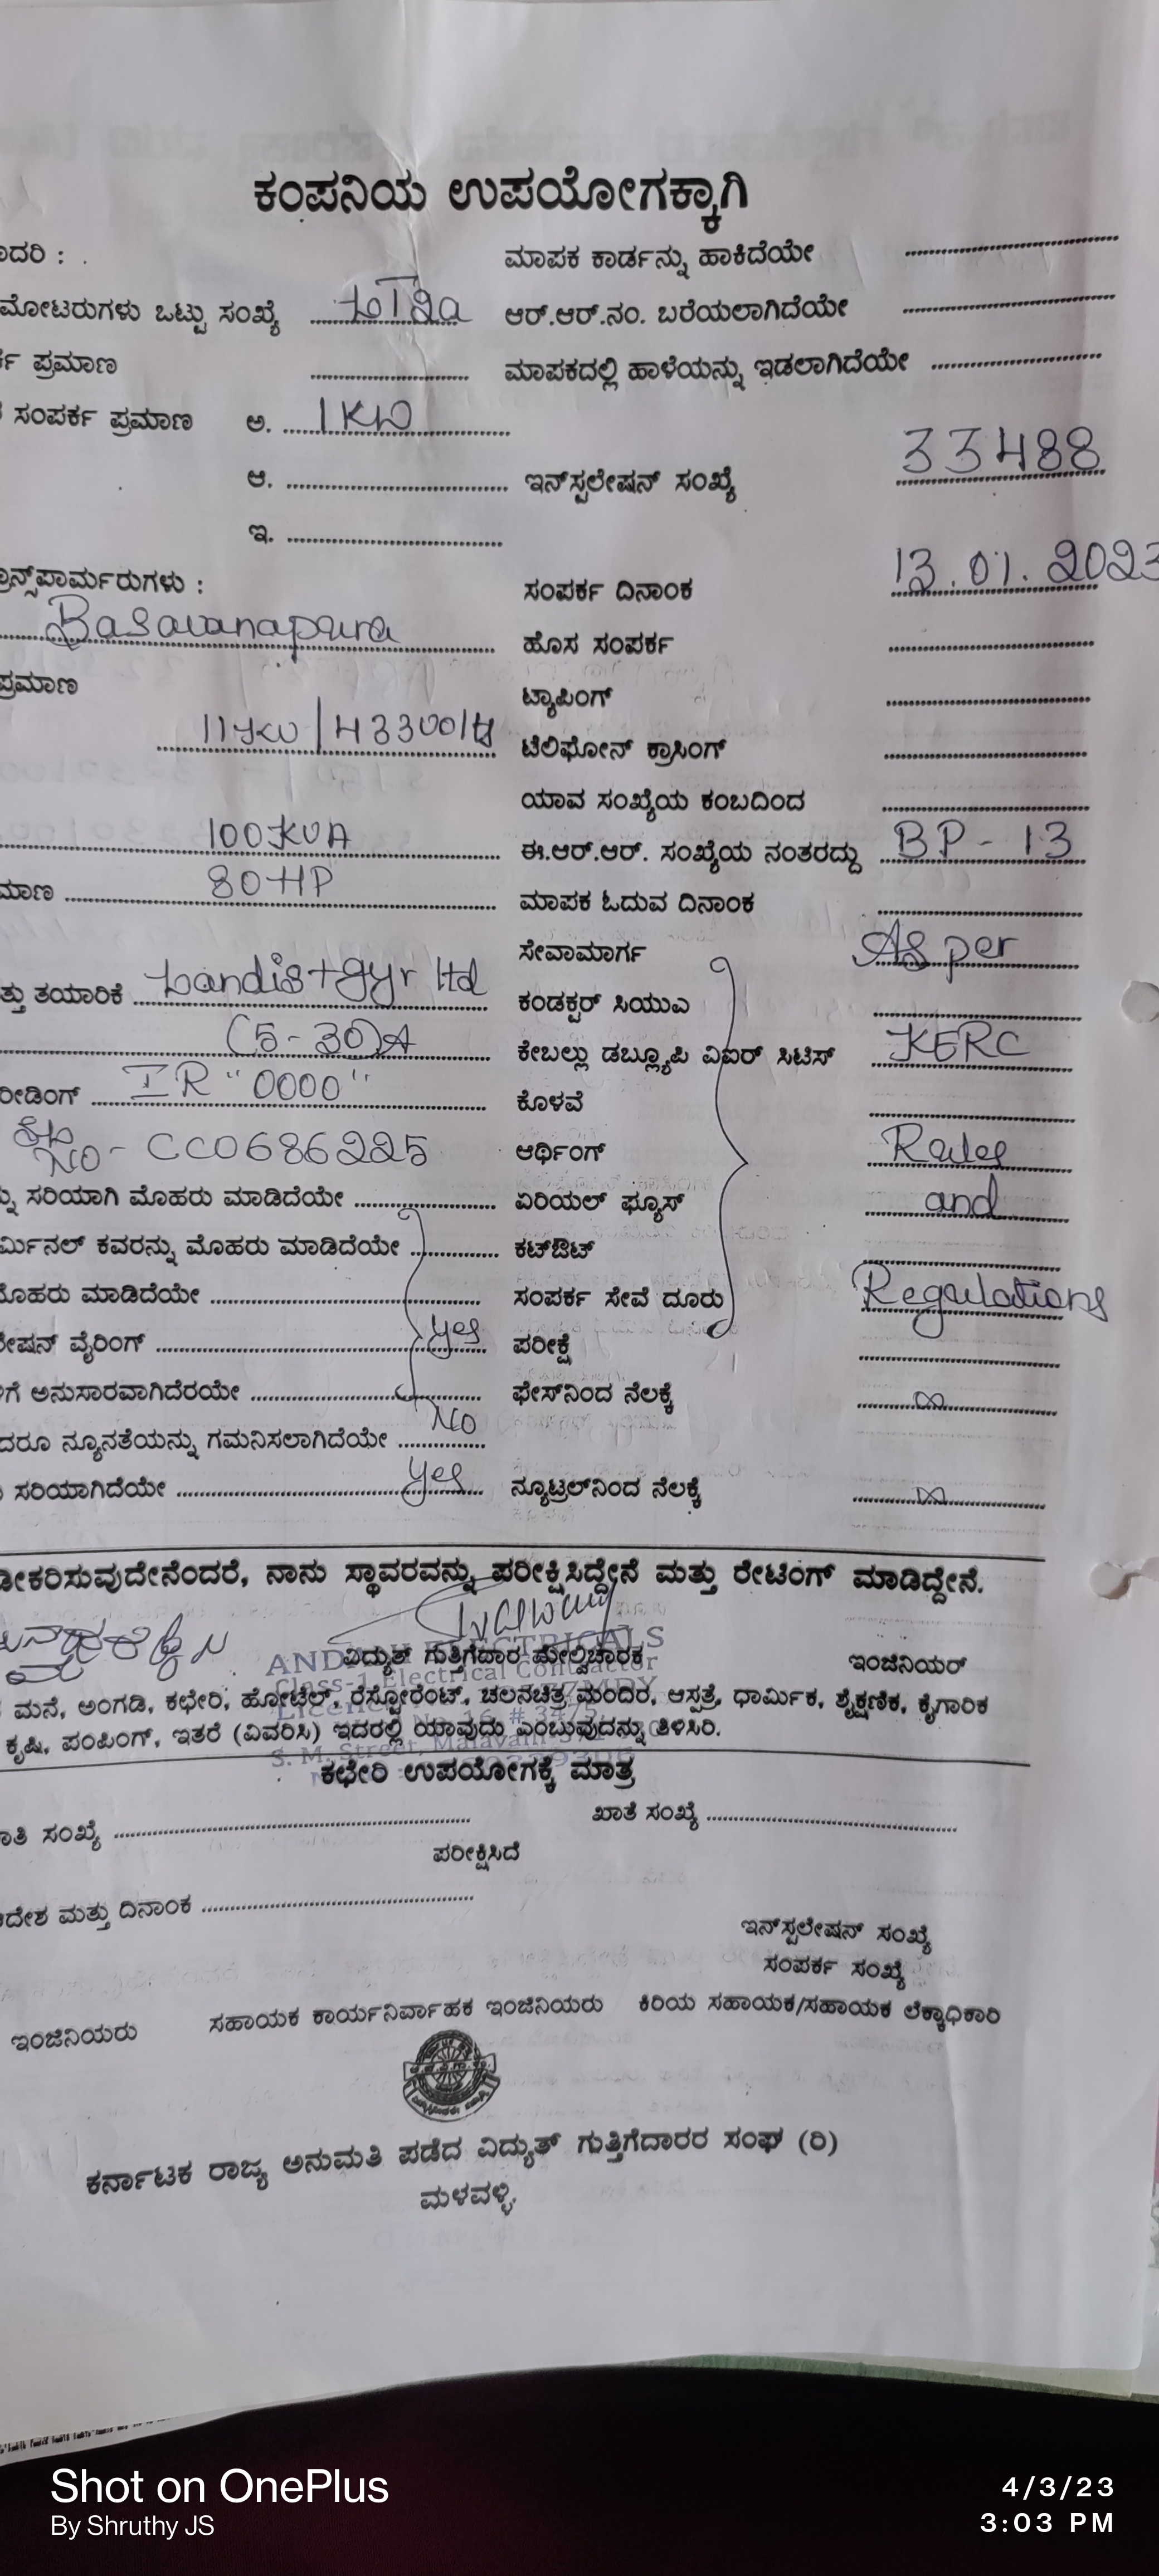 ಕಂಪನಿಯ ಉಪಯೋಗಕ್ಕಾಗಿ
ದರಿ : ಮಾಪಕ ಕಾರ್ಡನ್ನು ಹಾಕಿದೆಯೇ
ಮೋಟರುಗಳು ಒಟ್ಟು ಸಂಖ್ಯೆ ಆರ್.ಆರ್.ನಂ. ಬರೆಯಲಾಗಿದೆಯೇ
ಪ್ರಮಾಣ ಮಾಪಕದಲ್ಲಿ ಹಾಳೆಯನ್ನು ಇಡಲಾಗಿದೆಯೇ
ಸಂಪರ್ಕ ಪ್ರಮಾಣ ಅ. 1 KW
ಆ. ಇನ್‌ಸ್ಪಲೇಷನ್ ಸಂಖ್ಯೆ 33488
ಇ.
ನ್ಸ್‌ಪಾರ್ಮರುಗಳು : ಸಂಪರ್ಕ ದಿನಾಂಕ 13.01.2023
Basavanapura ಹೊಸ ಸಂಪರ್ಕ
ಪ್ರಮಾಣ ಟ್ಯಾಪಿಂಗ್
ಟೆಲಿಫೋನ್ ಕ್ರಾಸಿಂಗ್
ಯಾವ ಸಂಖ್ಯೆಯ ಕಂಬದಿಂದ
100 KVA ಈ.ಆರ್.ಆರ್. ಸಂಖ್ಯೆಯ ನಂತರದ್ದು BP - 13
ಮಾಣ 80 HP ಮಾಪಕ ಓದುವ ದಿನಾಂಕ
ಸೇವಾಮಾರ್ಗ As per
ತ್ತು ತಯಾರಿಕೆ Landis+gyr ltd ಕಂಡಕ್ಟರ್ ಸಿಯುಎ
(5-30)A ಕೇಬಲ್ಲು ಡಬ್ಲ್ಯೂಪಿ ವಿಐರ್ ಸಿಟಿಸ್ KERC
ರೀಡಿಂಗ್ IR "0000" ಕೊಳವೆ
NO - CC0686225 ಆರ್ಥಿಂಗ್ Rules
ನ್ನು ಸರಿಯಾಗಿ ಮೊಹರು ಮಾಡಿದೆಯೇ ಏರಿಯಲ್ ಫ್ಯೂಸ್ and
ರ್ಮಿನಲ್ ಕವರನ್ನು ಮೊಹರು ಮಾಡಿದೆಯೇ ಕಟ್‌ಔಟ್
ಮೊಹರು ಮಾಡಿದೆಯೇ ಸಂಪರ್ಕ ಸೇವೆ ದೂರು Regulations
ಲೇಷನ್ ವೈರಿಂಗ್ Yes ಪರೀಕ್ಷೆ
ಗೆ ಅನುಸಾರವಾಗಿದೆರಯೇ ಫೇಸ್‌ನಿಂದ ನೆಲಕ್ಕೆ ∞
ದರೂ ನ್ಯೂನತೆಯನ್ನು ಗಮನಿಸಲಾಗಿದೆಯೇ NO
ಸರಿಯಾಗಿದೆಯೇ Yes ನ್ಯೂಟ್ರಲ್‌ನಿಂದ ನೆಲಕ್ಕೆ ∞
ಡೀಕರಿಸುವುದೇನೆಂದರೆ, ನಾನು ಸ್ಥಾವರವನ್ನು ಪರೀಕ್ಷಿಸಿದ್ದೇನೆ ಮತ್ತು ರೇಟಿಂಗ್ ಮಾಡಿದ್ದೇನೆ.
ವಿದ್ಯುತ್ ಗುತ್ತಿಗೆದಾರ ಮೇಲ್ವಿಚಾರಕ ಇಂಜಿನಿಯರ್
Class-1 Electrical Contractor
ಮನೆ, ಅಂಗಡಿ, ಕಛೇರಿ, ಹೋಟೆಲ್, ರೆಸ್ಟೋರೆಂಟ್, ಚಲನಚಿತ್ರ ಮಂದಿರ, ಆಸ್ಪತ್ರೆ, ಧಾರ್ಮಿಕ, ಶೈಕ್ಷಣಿಕ, ಕೈಗಾರಿಕ
ಕೃಷಿ, ಪಂಪಿಂಗ್, ಇತರೆ (ವಿವರಿಸಿ) ಇದರಲ್ಲಿ ಯಾವುದು ಎಂಬುವುದನ್ನು ತಿಳಿಸಿರಿ.
S. M. Street, Malavalli
ಕಛೇರಿ ಉಪಯೋಗಕ್ಕೆ ಮಾತ್ರ
ಸಂಖ್ಯೆ ಖಾತೆ ಸಂಖ್ಯೆ
ಪರೀಕ್ಷಿಸಿದೆ
ಆದೇಶ ಮತ್ತು ದಿನಾಂಕ
ಇನ್‌ಸ್ಪಲೇಷನ್ ಸಂಖ್ಯೆ
ಸಂಪರ್ಕ ಸಂಖ್ಯೆ
ಇಂಜಿನಿಯರು ಸಹಾಯಕ ಕಾರ್ಯನಿರ್ವಾಹಕ ಇಂಜಿನಿಯರು ಕಿರಿಯ ಸಹಾಯಕ/ಸಹಾಯಕ ಲೆಕ್ಕಾಧಿಕಾರಿ
ಕರ್ನಾಟಕ ರಾಜ್ಯ ಅನುಮತಿ ಪಡೆದ ವಿದ್ಯುತ್ ಗುತ್ತಿಗೆದಾರರ ಸಂಘ (ರಿ)
ಮಳವಳ್ಳಿ.
Shot on OnePlus
By Shruthy JS
4/3/23
3:03 PM